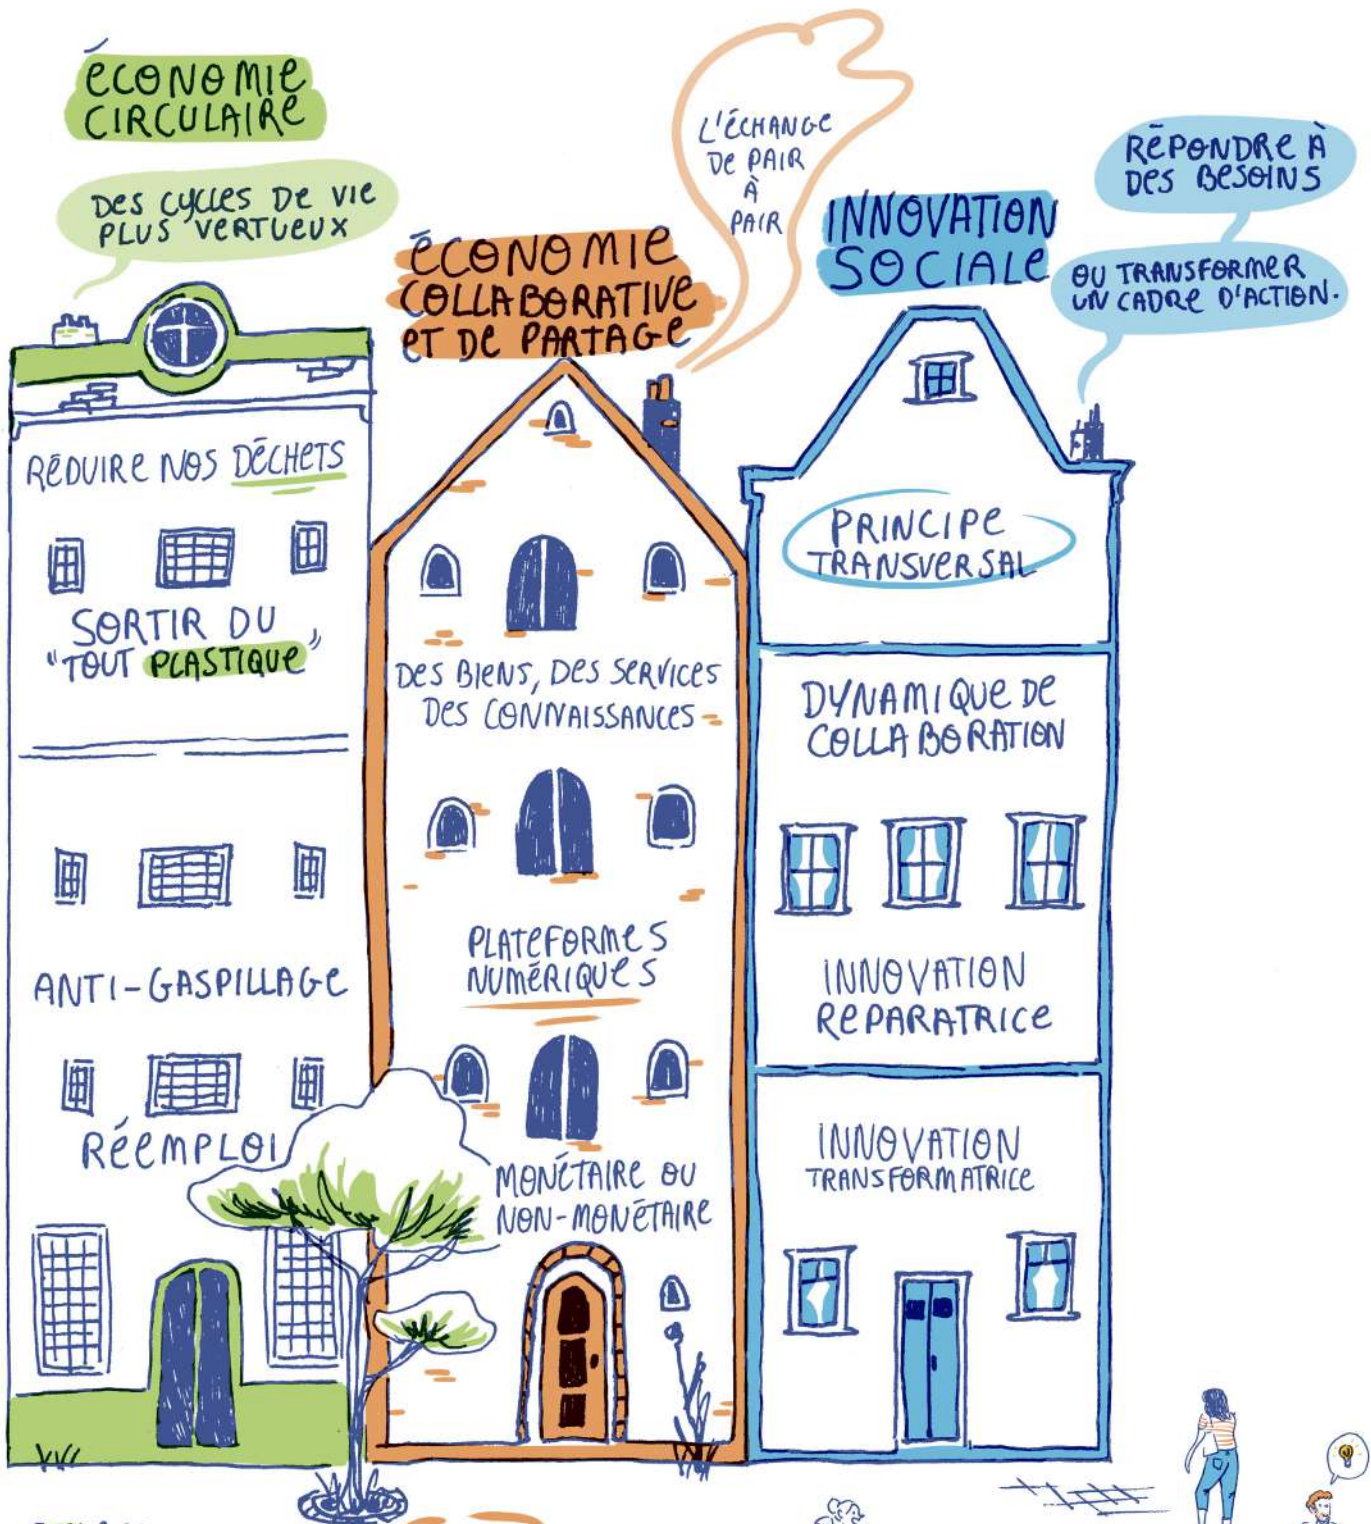 ÉCONOMIE
CIRCULAIRE
DES CYCLES DE VIE
PLUS VERTUEUX
RÉDUIRE NOS DÉCHETS
SORTIR DU
"TOUT PLASTIQUE"
ANTI-GASPILLAGE
RÉEMPLOI
ÉCONOMIE
COLLABORATIVE
ET DE PARTAGE
L'ÉCHANGE
DE PAIR
À
PAIR
DES BIENS, DES SERVICES
DES CONNAISSANCES
PLATEFORMES
NUMÉRIQUES
MONÉTAIRE OU
NON-MONÉTAIRE
INNOVATION
SOCIALE
RÉPONDRE À
DES BESOINS
OU TRANSFORMER
UN CADRE D'ACTION.
PRINCIPE
TRANSVERSAL
DYNAMIQUE DE
COLLABORATION
INNOVATION
REPARATRICE
INNOVATION
TRANSFORMATRICE